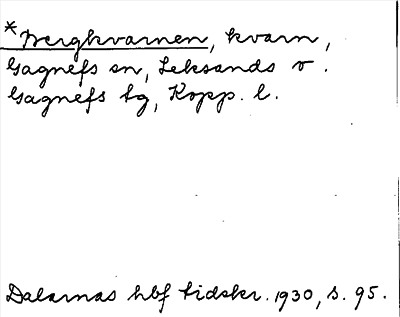 *Bergkvarnen, kvarn,
Gagnefs sn, Leksands o.
Gagnefs tg, Kopp. l.
Dalarnas hbf tidskr. 1930, s. 95.